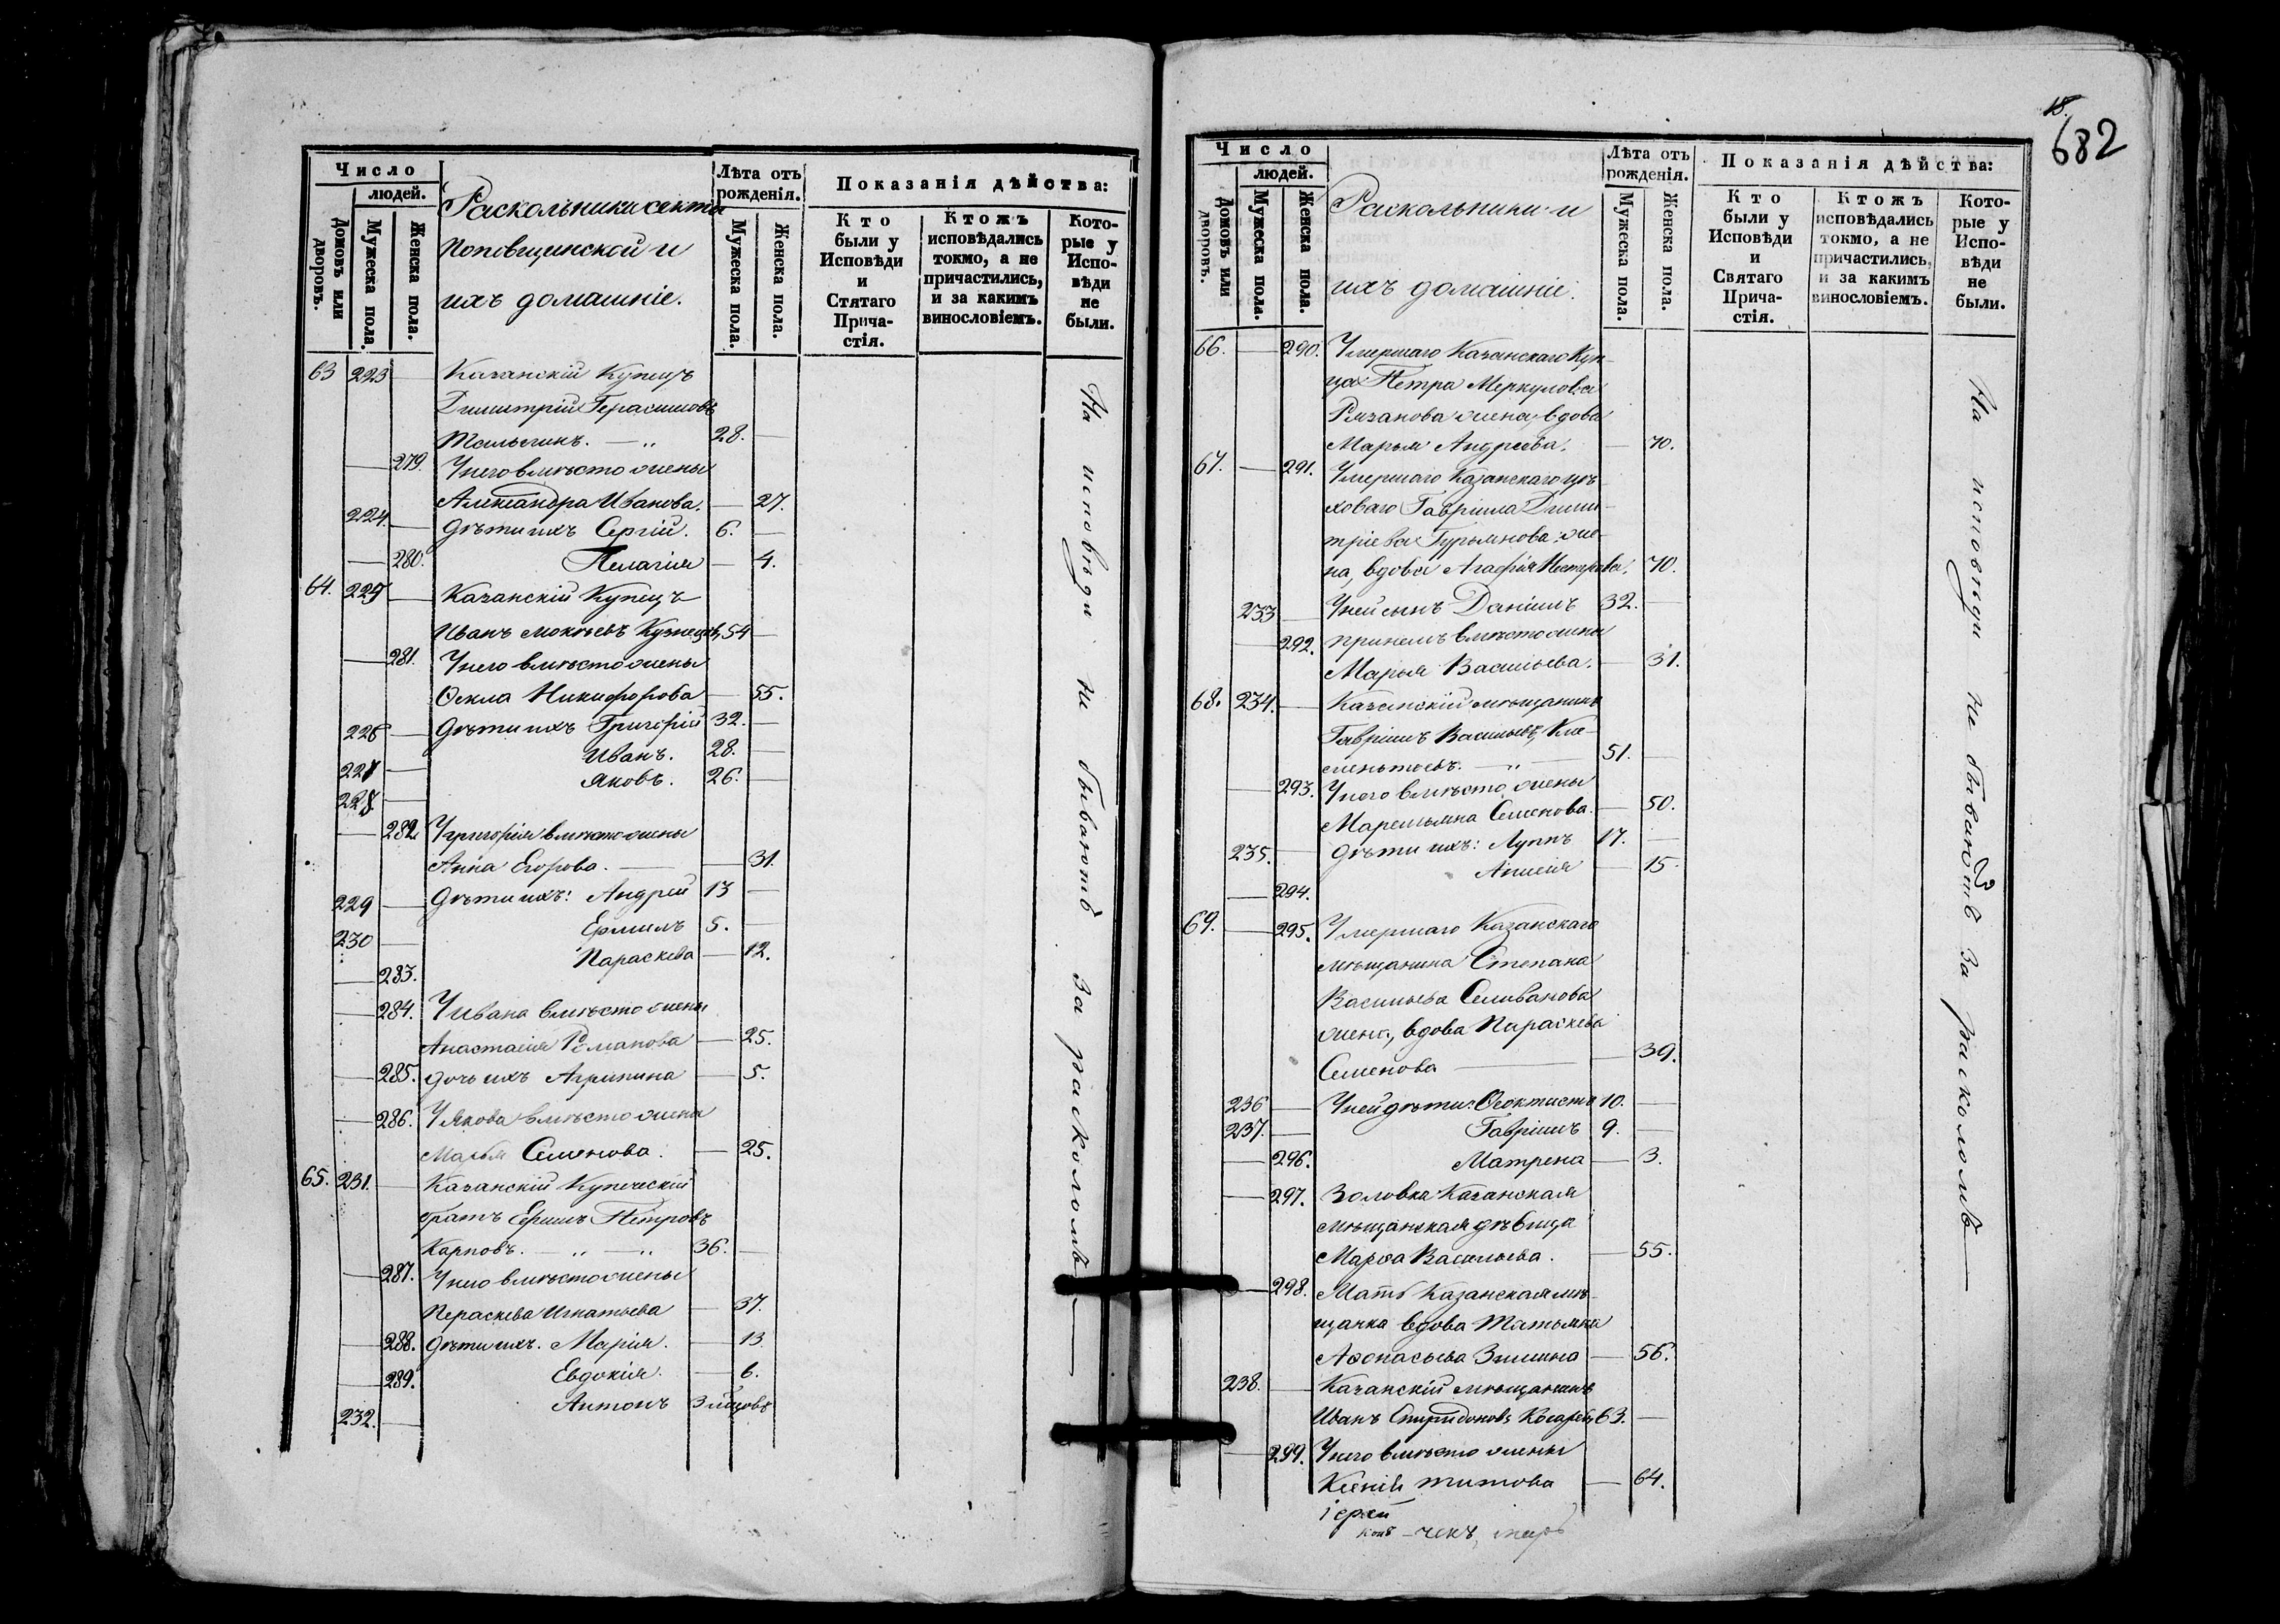 Число
людей.
Домовъ или дворовъ.
Мужеска пола.
Женска пола.
Раскольники секты
Поповщинской и
ихъ домашніе.
Лѣта отъ рожденія.
Мужеска пола.
Женска пола.
Показанія дѣйства:
Кто были у Исповѣди и Стятаго Прича-стія.
Ктожъ исповѣдались токмо, а не причастились, и за какимъ винословіемъ.
Кото-рые у Испо-вѣди не были.
63 223 — Казанскій Купецъ
Димитрій Герасимовъ
28. —
— 279. У него вмѣсто жены
Александра Иванова. — 27.
224. — Дѣти ихъ Сергій. 6. —
— 280. Пелагія — 4.
64. 225 — Казанскій Купецъ
Иванъ Мокѣевъ Кузнецовъ 54 —
— 281. У него вмѣсто жены
Ѳекла Никифорова — 55.
226 — Дѣти ихъ Григорій 32. —
227 — Иванъ. 28. —
228 — Яковъ. 26. —
— 282. У Григорія вмѣсто жены
Анна Егорова. — — 31.
229 — Дѣти ихъ: Андрей 13 —
230 — Ермилъ 5. —
— 283. Параскева — 12.
— 284. У Ивана вмѣсто жены
Анастасія Романова — 25.
— 285. Дочь ихъ Агрипина — 5.
— 286. У Якова вмѣсто жены
Марья Семенова. — 25.
65. 231. — Казанскій Купеческій
братъ Ермилъ Петровъ
Карповъ. — „ — „ 36. —
— 287. У него вмѣсто жены
Пераскева Игнатьева — 37.
— 288. Дѣти ихъ. Марія. — 13.
— 289. Евдокія. — 6.
232. — Антонъ 3 мѣсцовъ
На исповѣди не бываютъ за расколомъ —
18.
682
Число
людей.
Домовъ или дворовъ.
Мужеска пола.
Женска пола.
Раскольники и
ихъ домашніе.
Лѣта отъ рожденія.
Мужеска пола.
Женска пола.
Показанія дѣйства:
Кто были у Исповѣди и Святаго Прича-стія.
Ктожъ исповѣдались токмо, а не причастились, и за какимъ винословіемъ.
Кото-рые у Испо-вѣди не были.
66. — 290. Умершаго Казанскаго Куп-
ца Петра Меркулова
Рязанова жена, вдова
Марья Андреева. — 70.
67. — 291. Умершаго Казанскаго цѣ-
ховаго Гавріила Дими-
тріева Гурьянова же-
на, вдова Агафія Нестерова. 70.
233 — У ней сынъ Даніилъ 32. —
— 292. при немъ вмѣсто жены
Марья Васильева. — 31.
68. 234. — Казанскій мѣщанинъ
Гавріилъ Васильевъ Кле-
ментьевъ. — „ — 51. —
— 293. У него вмѣсто жены
Маремьяна Семенова. — 50.
235. — Дѣти ихъ: Луппъ 17. —
— 294. Анисія — 15.
69. — 295. Умершаго Казанскаго
мѣщанина Степана
Васильева Селиванова
жена, вдова Параскева
Семенова — — 39.
236 — У ней дѣти: Ѳеоктистъ 10. —
237. — Гавріилъ 9. —
— 296. Матрена — 3.
— 297. Золовка Казанская
мѣщанская дѣвица
Марѳа Васильева. — 55.
— 298. Мать Казанская мѣ-
щанка вдова Татьяна
Аѳонасьева Зимина — 56.
238. — Казанскій мѣщанинъ
Иванъ Спиридоновъ 63. —
— 299. У него вмѣсто жены
Ксенія Титова — 64.
На исповѣди не бываютъ за расколомъ —
іерей